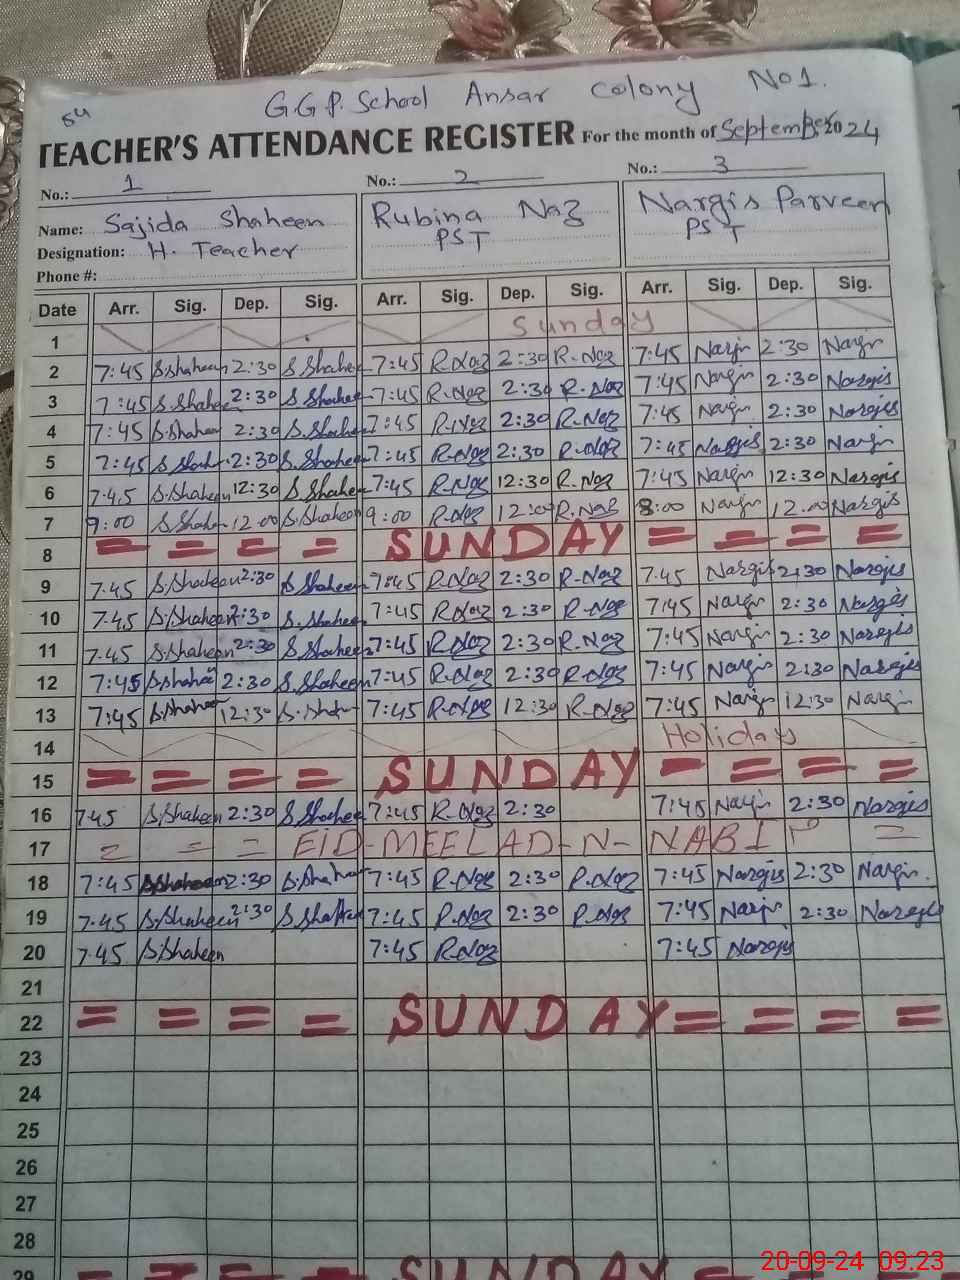 54
G.G.P. School Ansar Colony No 1.
TEACHER'S ATTENDANCE REGISTER For the month of September 2024
No.: 1 No.: 2 No.: 3
Name: Sajida Shaheen Rubina Naz Nargis Parveen
Designation: H. Teacher PST PST
Phone #:
Date Arr. Sig. Dep. Sig. Arr. Sig. Dep. Sig. Arr. Sig. Dep. Sig.
1 Sunday
2 7:45 S.Shaheen 2:30 S.Shaheen 7:45 R.Naz 2:30 R.Naz 7:45 Nargis 2:30 Nargis
3 7:45 S.Shaheen 2:30 S.Shaheen 7:45 R.Naz 2:30 R.Naz 7:45 Nargis 2:30 Nargis
4 7:45 S.Shaheen 2:30 S.Shaheen 7:45 R.Naz 2:30 R.Naz 7:45 Nargis 2:30 Nargis
5 7:45 S.Shaheen 2:30 S.Shaheen 7:45 R.Naz 2:30 R.Naz 7:45 Nargis 2:30 Nargis
6 7:45 S.Shaheen 12:30 S.Shaheen 7:45 R.Naz 12:30 R.Naz 7:45 Nargis 12:30 Nargis
7 9:00 S.Shaheen 12:00 S.Shaheen 9:00 R.Naz 12:00 R.Naz 8:00 Nargis 12:00 Nargis
8 = = = = SUNDAY = = = =
9 7:45 S.Shaheen 2:30 S.Shaheen 7:45 R.Naz 2:30 R.Naz 7:45 Nargis 2:30 Nargis
10 7:45 S.Shaheen 2:30 S.Shaheen 7:45 R.Naz 2:30 R.Naz 7:45 Nargis 2:30 Nargis
11 7:45 S.Shaheen 2:30 S.Shaheen 7:45 R.Naz 2:30 R.Naz 7:45 Nargis 2:30 Nargis
12 7:45 S.Shaheen 2:30 S.Shaheen 7:45 R.Naz 2:30 R.Naz 7:45 Nargis 2:30 Nargis
13 7:45 S.Shaheen 12:30 S.Shaheen 7:45 R.Naz 12:30 R.Naz 7:45 Nargis 12:30 Nargis
14 Holiday
15 = = = = SUNDAY = = = =
16 7:45 S.Shaheen 2:30 S.Shaheen 7:45 R.Naz 2:30 7:45 Nargis 2:30 Nargis
17 = = = EID-MEELAD-N-NABI =
18 7:45 S.Shaheen 2:30 S.Shaheen 7:45 R.Naz 2:30 R.Naz 7:45 Nargis 2:30 Nargis
19 7:45 S.Shaheen 2:30 S.Shaheen 7:45 R.Naz 2:30 R.Naz 7:45 Nargis 2:30 Nargis
20 7:45 S.Shaheen 7:45 R.Naz 7:45 Nargis
21
22 = = = = SUNDAY = = = =
23
24
25
26
27
28
29 SUNDAY
20-09-24 09:23